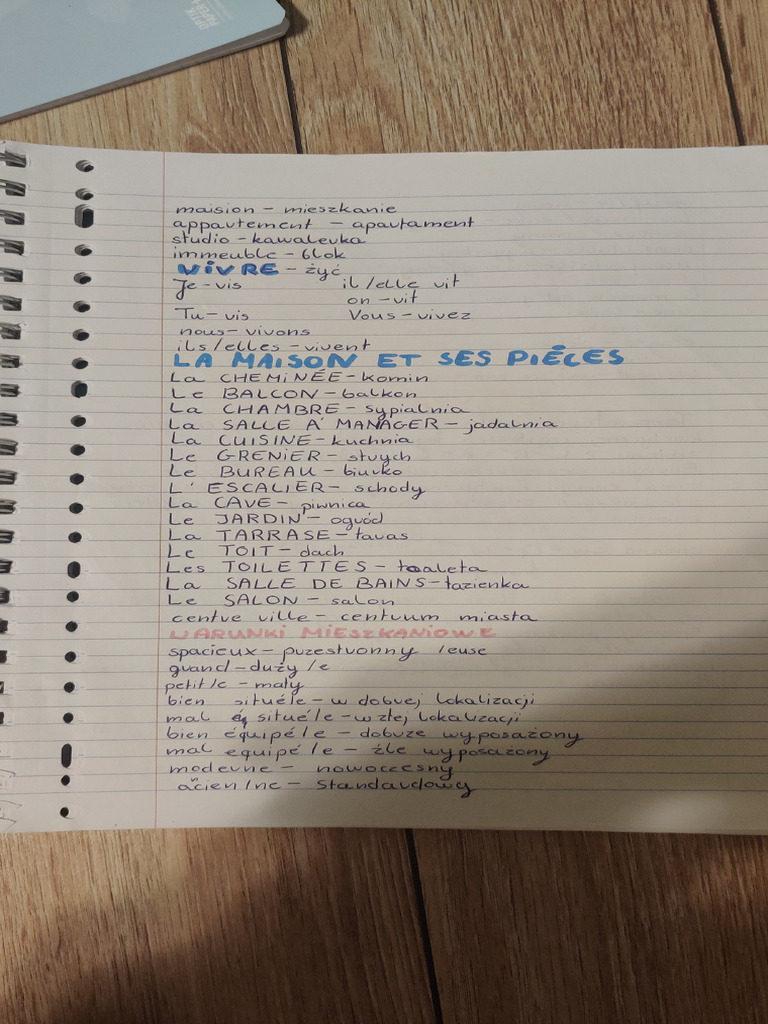 maision – mieszkanie
appartement – apartament
studio – kawalerka
immeuble – blok
VIVRE – żyć
Je – vis il/elle vit
on – vit
Tu – vis Vous – vivez
nous – vivons
ils/elles – vivent
LA MAISON ET SES PIÉCES
La CHEMINÉE – komin
Le BALCON – balkon
La CHAMBRE – sypialnia
La SALLE Á MANAGER – jadalnia
La CUISINE – kuchnia
Le GRENIER – strych
Le BUREAU – biurko
L'ESCALIER – schody
La CAVE – piwnica
Le JARDIN – ogród
La TARRASE – taras
Le TOIT – dach
Les TOILETTES – toaleta
La SALLE DE BAINS – łazienka
Le SALON – salon
centre ville – centrum miasta
WARUNKI MIESZKANIOWE
spacieux – przestronny /euse
grand – duży /e
petit/e – mały
bien situé/e – w dobrej lokalizacji
mal situé/e – w złej lokalizacji
bien équipé/e – dobrze wyposażony
mal equipé/e – źle wyposażony
moderne – nowoczesny
ancien/ne – standardowy